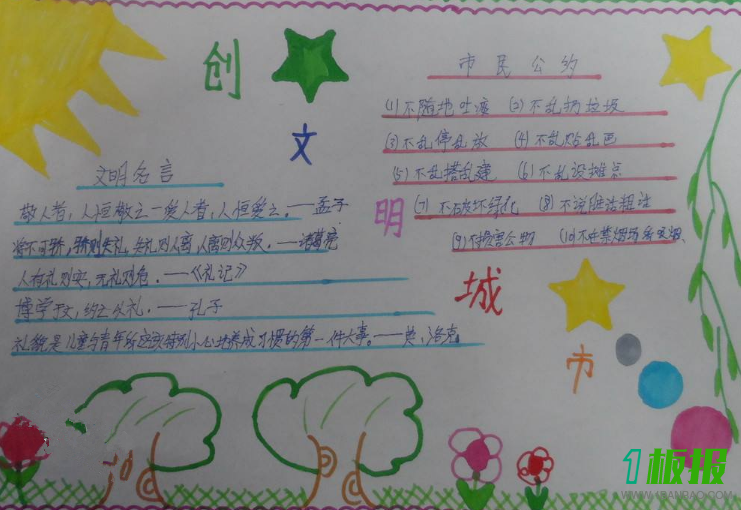 创
文
明
城
市
文明名言
敬人者，人恒敬之一爱人者，人恒爱之。——孟子
将不可骄，骄则失礼，失礼则人离，人离则众叛。——诸葛亮
人有礼则安，无礼则危。——《礼记》
博学于文，约之以礼。——孔子
礼貌是儿童与青年所应该特别小心地养成习惯的第一件大事。——英、洛克
市民公约
(1)不随地吐痰 (2)不乱扔垃圾
(3)不乱停乱放 (4)不乱贴乱画
(5)不乱搭乱建 (6)不乱设摊点
(7)不破坏绿化 (8)不说脏话粗话
(9)不损害公物 (10)不在禁烟场所吸烟、
1板报
WWW.1BANBAO.COM